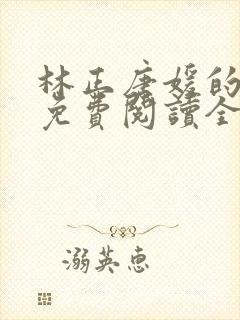 林正唐媛的
免費閱讀全
溺英惠